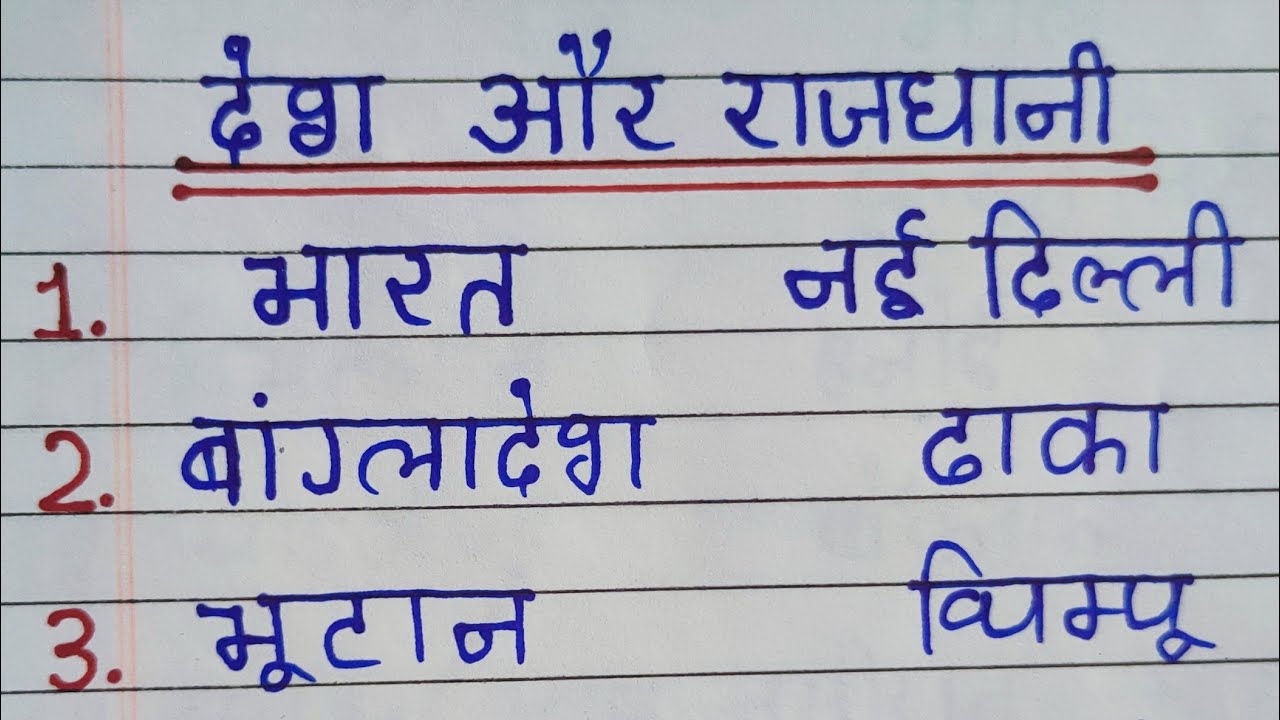 देश और राजधानी
1. भारत नई दिल्ली
2. बांग्लादेश ढाका
3. भूटान थिम्पू